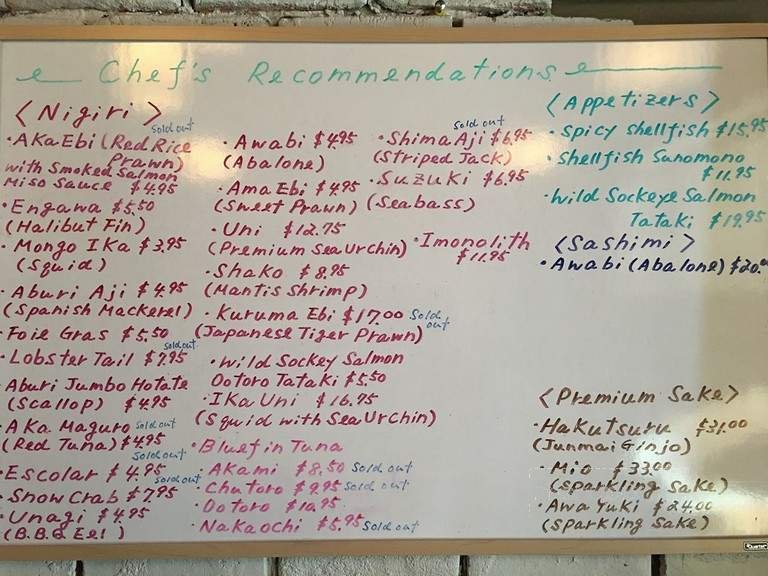 Chef's Recommendations
<Nigiri>
sold out
• Aka Ebi (Red Rice
Prawn)
with Smoked Salmon
Miso Sauce $4.95
• Engawa $5.50
(Halibut Fin)
• Mongo Ika $3.95
(Squid)
• Aburi Aji $4.95
(Spanish Mackerel)
• Foie Gras $5.50
sold out
• Lobster Tail $7.95
Aburi Jumbo Hotate
(Scallop) $4.95
• Aka Maguro sold out
(Red Tuna) $4.95
sold out
• Escolar $4.95
sold out
• Snow Crab $7.95
• Unagi $4.95
(B.B.Q Eel)
• Awabi $4.95
(Abalone)
• Ama Ebi $4.95
(Sweet Prawn)
• Uni $12.75
(Premium Sea Urchin)
• Shako $8.95
(Mantis Shrimp)
• Kuruma Ebi $17.00 Sold out
(Japanese Tiger Prawn)
• Wild Sockey Salmon
Ootoro Tataki $5.50
• Ika Uni $16.75
(Squid with Sea Urchin)
• Bluefin Tuna
• Akami $8.50 Sold out
• Chutoro $9.95 Sold out
• Ootoro $10.95
• Nakaochi $5.95 Sold out
sold out
• Shima Aji $6.95
(Striped Jack)
• Suzuki $6.95
(Seabass)
• Imonolith
$11.95
<Appetizers>
• Spicy shellfish $15.95
• Shellfish Sunomono
$11.95
• Wild Sockeye Salmon
Tataki $19.95
<Sashimi>
• Awabi (Abalone) $20.00
<Premium Sake>
• Hakutsuru $31.00
(Junmai Ginjo)
• Mio $33.00
(Sparkling Sake)
• Awa Yuki $24.00
(Sparkling Sake)
Quartet